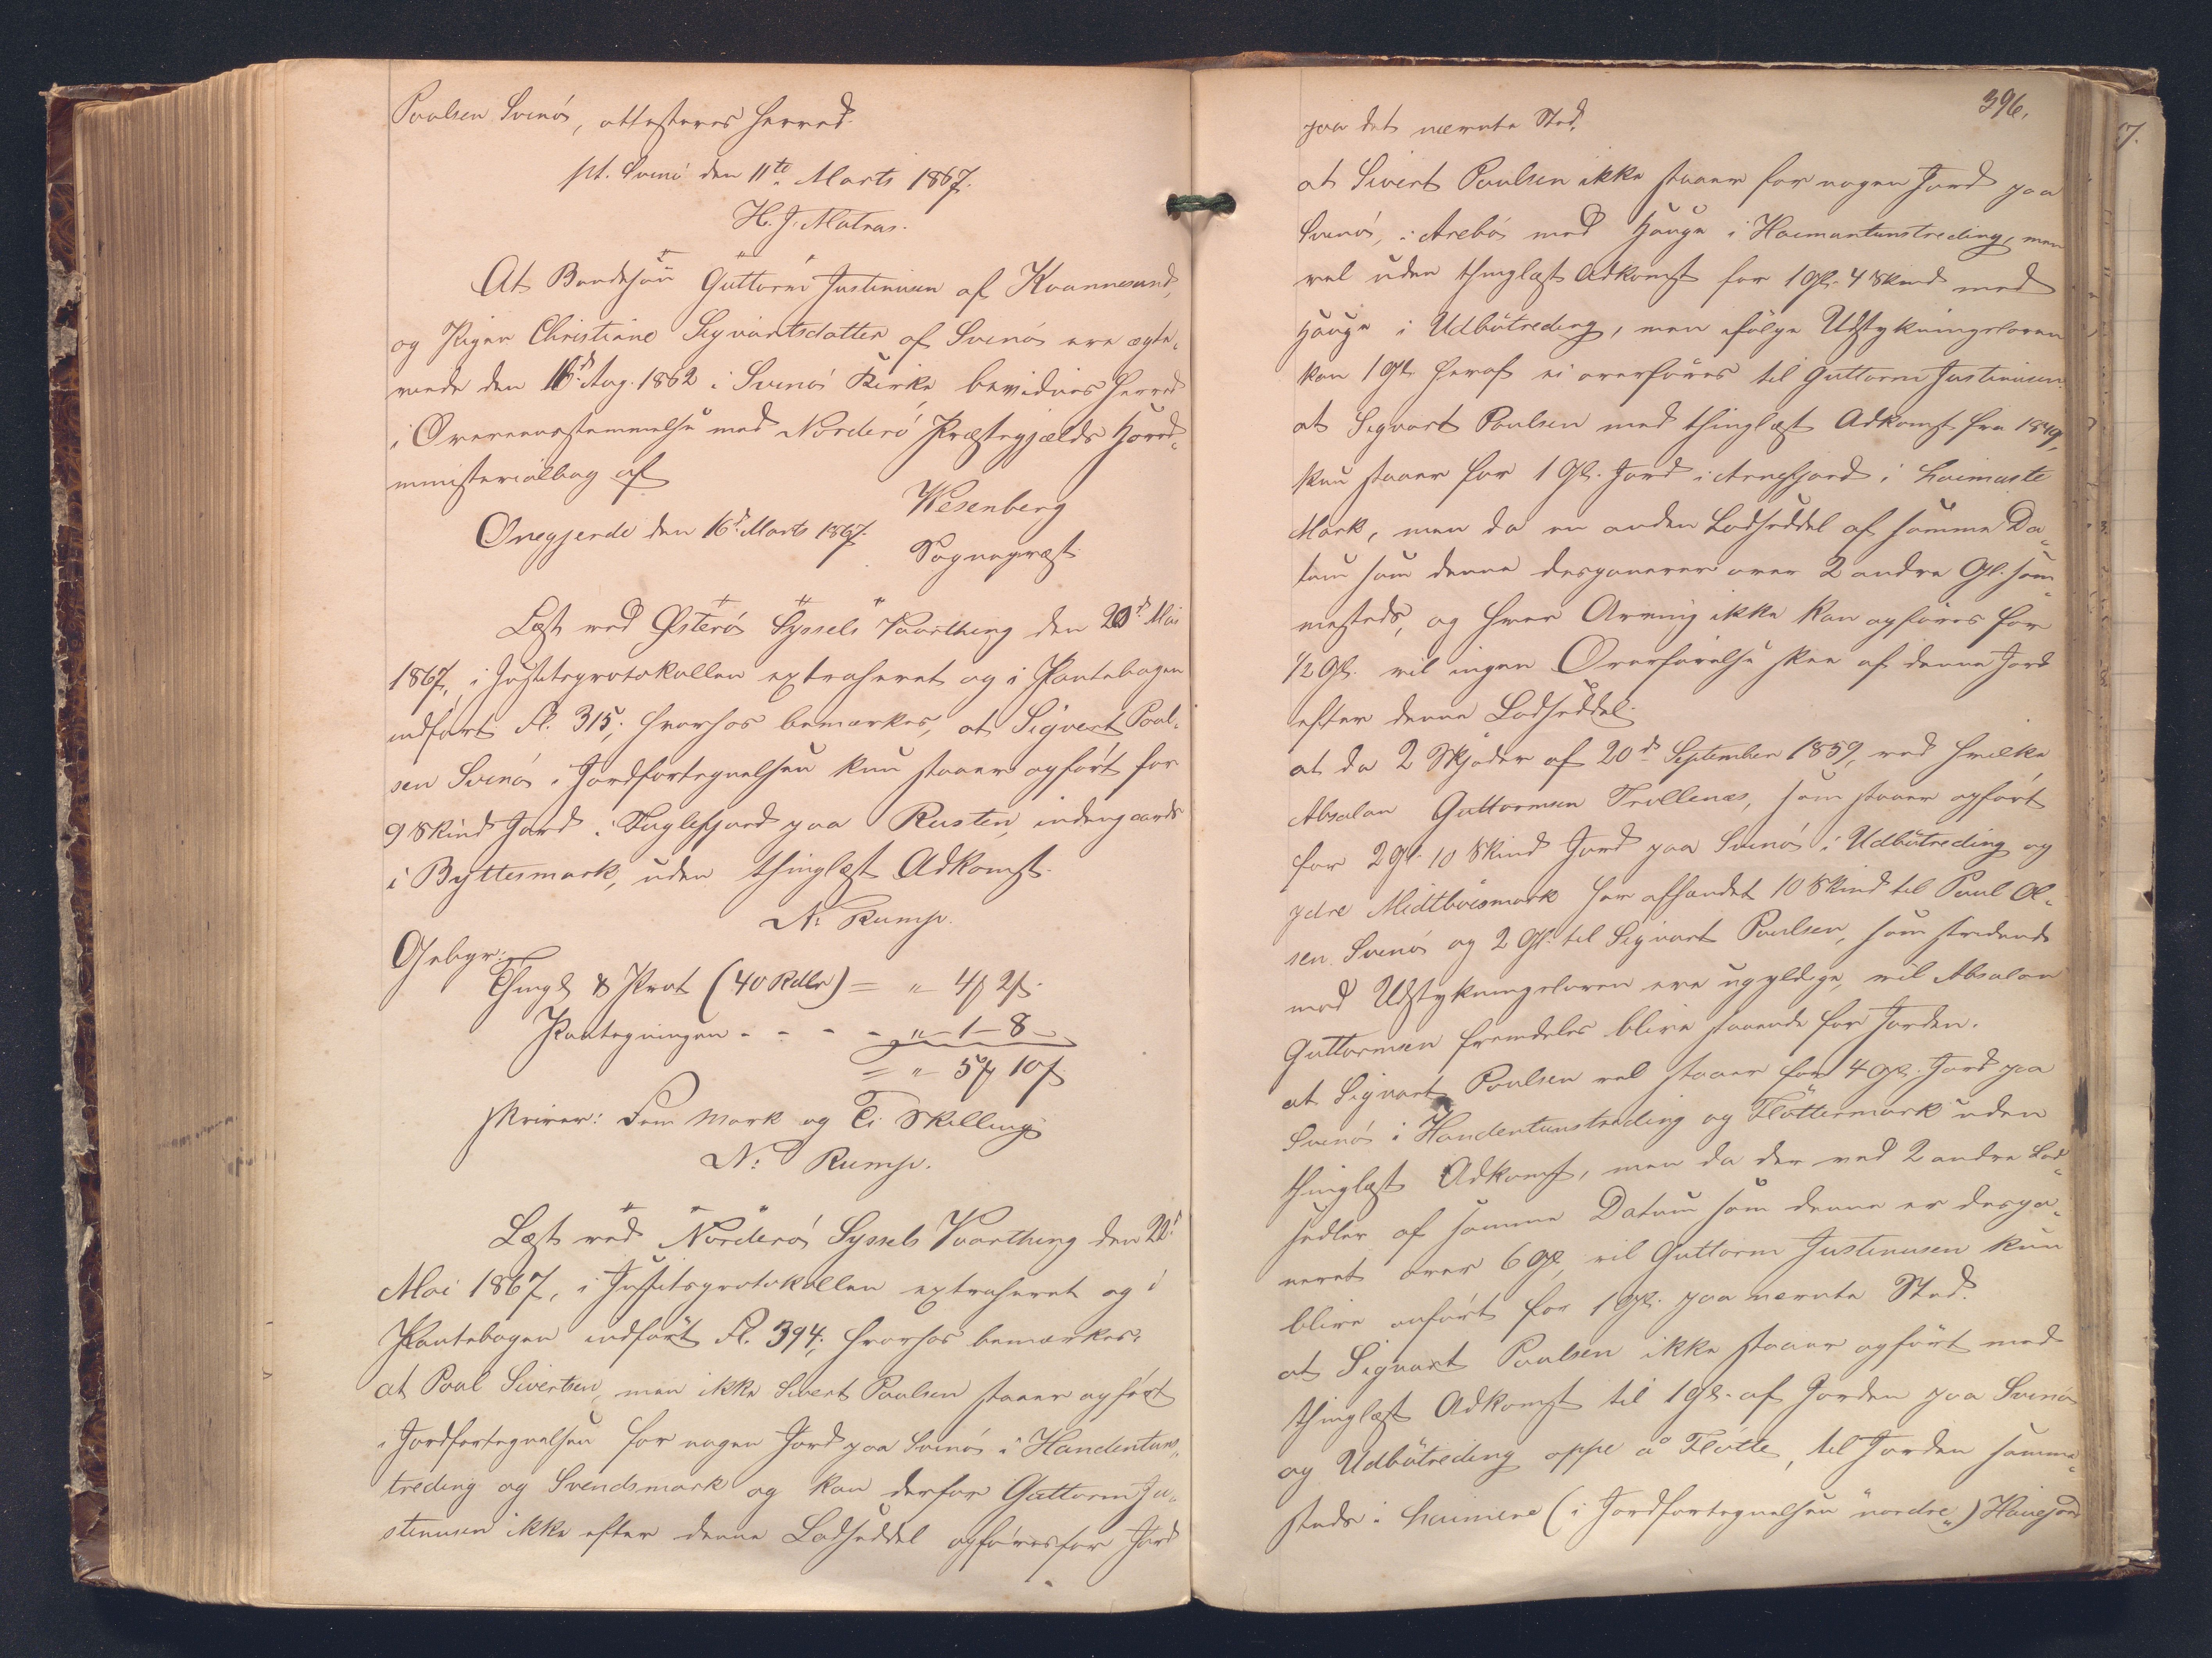 Poulsen Svinö, attesteres herved.
pt. Svinö den 11te Marts 1867.
H. J. Matras.
At Bondesøn Guttorm Justinusen af Kvannesund,
og Pigen Christiane Sigvartsdatter af Svinö ere ægte-
viede den 16d Aug. 1862 i Svinö Kirke, bevidnes herved
i Overeensstemmelse med Norderö Præstegjælds Hoved-
ministerialbog af
Wesenberg
Onegjerde den 16d Marts 1867.
Sognepræst.
Læst ved Österö Syssels Vaarthing den 20d Mai
1867, i Justitsprotokollen extraheret og i Pantebogen
indført Fl. 315; hvorhos bemærkes, at Sigvert Poul-
sen Svinö i Jordfortegnelsen kun staaer opført for
9 Skind Jord i Fuglefjord paa Rusten, indengaards
i Byttesmark, uden thinglæst Adkomst.
N: Rump.
Gebyr:
Thingl & Prot (40 Rdlr) = " 4 ƒ 2 ß.
Paategningen - - - - " - 1 - 8 -
= " - 5 ƒ 10 ß
skriver: Fem Mark og Ti Skilling
N: Rump.
Læst ved Norderö Syssels Vaarthing den 22d
Mai 1867, i Justitsprotokollen extraheret og i
Pantebogen indført Fl. 394; hvorhos bemærkes:
at Poul Sivertsen, men ikke Sivert Poulsen staaer opført
i Jordfortegnelsen for nogen Jord paa Svinö i Handentuns-
treding og Svendsmark og kan derfor Guttorm Ju-
stinusen ikke efter denne Lodseddel opføres for Jord
396.
paa det nævnte Sted,
at Sivert Poulsen ikke staaer for nogen Jord paa
Svinö, i Arebö med Hauge i Haimantunstreding, men
vel uden thinglæst Adkomst for 1 Gl. 4 Skind med
Hauge i Udbütreding, men ifölge Udstykningsloven
kan 1 Gl. heraf ei overføres til Guttorm Justinusen.
at Sigvart Poulsen med thinglæst Adkomst fra 1849,
kun staaer for 1 Gl. Jord i Arnefjord i haimaste
Mark, men da en anden Lodseddel af samme Da-
tum som denne disponerer over 2 andre Gl. sam-
mesteds, og hver Arving ikke kan opføres for
1/2 Gl. vil ingen Overførelse skee af denne Jord
efter denne Lodseddel.
at da 2 Skjøder af 20de September 1859, ved hvilke
Absalon Guttormsen Trøllenæs, som staaer opført
for 2 Gl. 10 Skind Jord paa Svinö i Udbütreding og
ydre Midtböismark har afhændet 10 Skind til Poul Ol-
sen Svinö og 2 Gl. til Sigvart Poulsen, som stridende
mod Udstykningsloven ere ugyldige, vil Absalon
Guttormsen fremdeles blive staaende for Jorden.
at Sigvart Poulsen vel staaer for 4 Gl. Jord paa
Svinö i Handentunstreding og Fløttermark uden
thinglæst Adkomst, men da der ved 2 andre Lod-
sedler af samme Datum som denne er dispo-
neret over 6 Gl, vil Guttorm Justinusen kun
blive anført for 1 Gl. paa nævnte Sted.
at Sigvart Poulsen ikke staaer opført med
thinglæst Adkomst til 1 Gl. af Jorden paa Svinö
og Udbütreding oppe a Fløtte, til Jorden samme-
steds i haimere (i Jordfortegnelsen "nordre") Hauejord